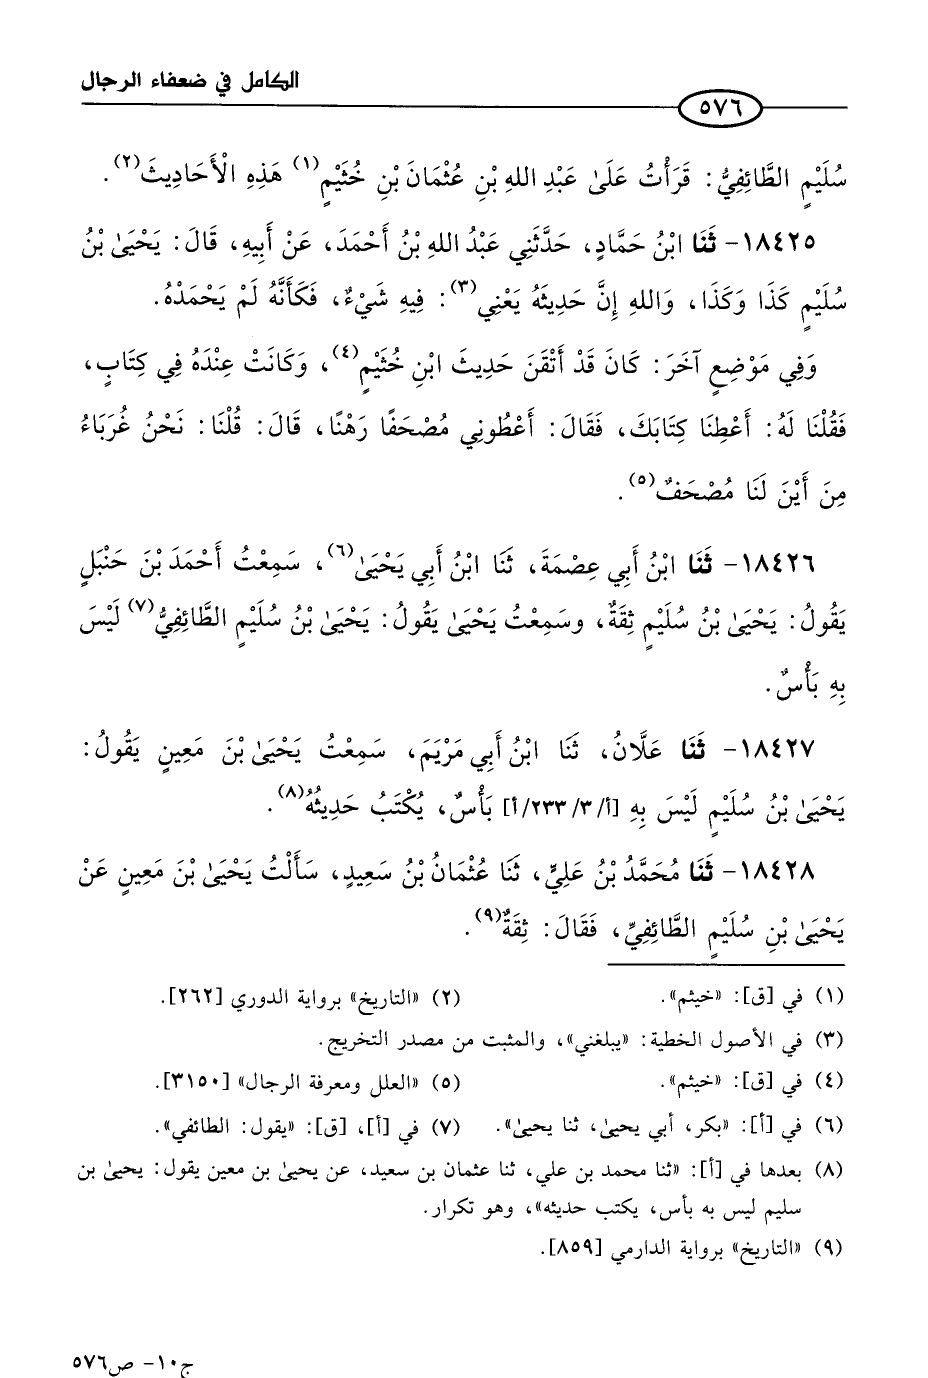 الكامل في ضعفاء الرجال
٥٧٦
سُلَيْمٍ الطَّائِفِيُّ: قَرَأْتُ عَلَىٰ عَبْدِ اللهِ بْنِ عُثْمَانَ بْنِ خُثَيْمٍ(١) هَذِهِ الْأَحَادِيثَ(٢).
١٨٤٢٥- ثَنَا ابْنُ حَمَّادٍ، حَدَّثَنِي عَبْدُ اللهِ بْنُ أَحْمَدَ، عَنْ أَبِيهِ، قَالَ: يَحْيَىٰ بْنُ
سُلَيْمٍ كَذَا وَكَذَا، وَاللهِ إِنَّ حَدِيثَهُ يَعْنِي(٣): فِيهِ شَيْءٌ، فَكَأَنَّهُ لَمْ يَحْمَدْهُ.
وَفِي مَوْضِعٍ آخَرَ: كَانَ قَدْ أَتْقَنَ حَدِيثَ ابْنِ خُثَيْمٍ(٤)، وَكَانَتْ عِنْدَهُ فِي كِتَابٍ،
فَقُلْنَا لَهُ: أَعْطِنَا كِتَابَكَ، فَقَالَ: أَعْطُونِي مُصْحَفًا رَهْنًا، قَالَ: قُلْنَا: نَحْنُ غُرَبَاءُ
مِنَ أَيْنَ لَنَا مُصْحَفٌ(٥).
١٨٤٢٦- ثَنَا ابْنُ أَبِي عِصْمَةَ، ثَنَا ابْنُ أَبِي يَحْيَىٰ(٦)، سَمِعْتُ أَحْمَدَ بْنَ حَنْبَلٍ
يَقُولُ: يَحْيَىٰ بْنُ سُلَيْمٍ ثِقَةٌ، وسَمِعْتُ يَحْيَىٰ يَقُولُ: يَحْيَىٰ بْنُ سُلَيْمٍ الطَّائِفِيُّ(٧) لَيْسَ
بِهِ بَأْسٌ.
١٨٤٢٧- ثَنَا عَلَّانُ، ثَنَا ابْنُ أَبِي مَرْيَمَ، سَمِعْتُ يَحْيَىٰ بْنَ مَعِينٍ يَقُولُ:
يَحْيَىٰ بْنُ سُلَيْمٍ لَيْسَ بِهِ [أ/٢٣٣/٣/أ] بَأْسٌ، يُكْتَبُ حَدِيثُهُ(٨).
١٨٤٢٨- ثَنَا مُحَمَّدُ بْنُ عَلِيٍّ، ثَنَا عُثْمَانُ بْنُ سَعِيدٍ، سَأَلْتُ يَحْيَىٰ بْنَ مَعِينٍ عَنْ
يَحْيَىٰ بْنِ سُلَيْمٍ الطَّائِفِيِّ، فَقَالَ: ثِقَةٌ(٩).
(١) في [ق]: «خيثم». (٢) «التاريخ» برواية الدوري [٢٦٢].
(٣) في الأصول الخطية: «يبلغني»، والمثبت من مصدر التخريج.
(٤) في [ق]: «خيثم». (٥) «العلل ومعرفة الرجال» [٣١٥٠].
(٦) في [أ]: «بكر، أبي يحيىٰ، ثنا يحيىٰ». (٧) في [أ]، [ق]: «يقول: الطائفي».
(٨) بعدها في [أ]: «ثنا محمد بن علي، ثنا عثمان بن سعيد، عن يحيىٰ بن معين يقول: يحيىٰ بن
سليم ليس به بأس، يكتب حديثه»، وهو تكرار.
(٩) «التاريخ» برواية الدارمي [٨٥٩].
ج١٠- ص٥٧٦